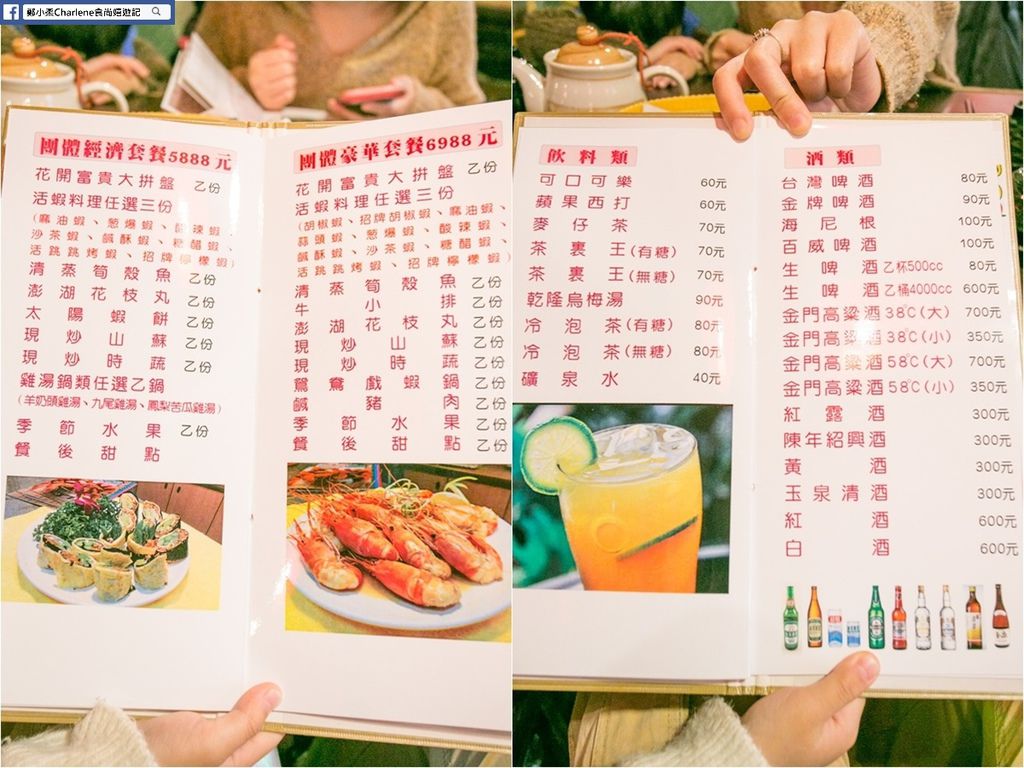 鄭小柔Charlene食尚嬉遊記
團體經濟套餐5888元
花開富貴大拼盤 乙份
活蝦料理任選三份
(麻油蝦、蔥爆蝦、酸辣蝦、
沙茶蝦、鹹酥蝦、糖醋蝦、
活跳跳烤蝦、招牌檸檬蝦)
清蒸筍殼魚 乙份
澎湖花枝丸 乙份
太陽蝦餅 乙份
現炒山蘇 乙份
現炒時蔬 乙份
雞湯鍋類任選乙鍋
(羊奶頭雞湯、九尾雞湯、鳳梨苦瓜雞湯)
季節水果 乙份
餐後甜點
團體豪華套餐6988元
花開富貴大拼盤 乙份
活蝦料理任選三份
(胡椒蝦、招牌胡椒蝦、麻油蝦、
蒜頭蝦、蔥爆蝦、酸辣蝦、
鹹酥蝦、沙茶蝦、糖醋蝦、
活跳跳烤蝦、招牌檸檬蝦)
清蒸筍殼魚 乙份
牛小排 乙份
澎湖花枝丸 乙份
現炒山蘇 乙份
現炒時蔬 乙份
鴛鴦戲蝦鍋 乙份
鹹豬肉 乙份
季節水果 乙份
餐後甜點 乙份
飲料類
可口可樂 60元
蘋果西打 60元
麥仔茶 70元
茶裏王(有糖) 70元
茶裏王(無糖) 70元
乾隆烏梅湯 90元
冷泡茶(有糖) 80元
冷泡茶(無糖) 80元
礦泉水 40元
酒類
台灣啤酒 80元
金牌啤酒 90元
海尼根 100元
百威啤酒 100元
生啤酒乙杯500cc 80元
生啤酒乙桶4000cc 600元
金門高粱酒38℃(大) 700元
金門高粱酒38℃(小) 350元
金門高粱酒58℃(大) 700元
金門高粱酒58℃(小) 350元
紅露酒 300元
陳年紹興酒 300元
黃酒 300元
玉泉清酒 300元
紅酒 600元
白酒 600元